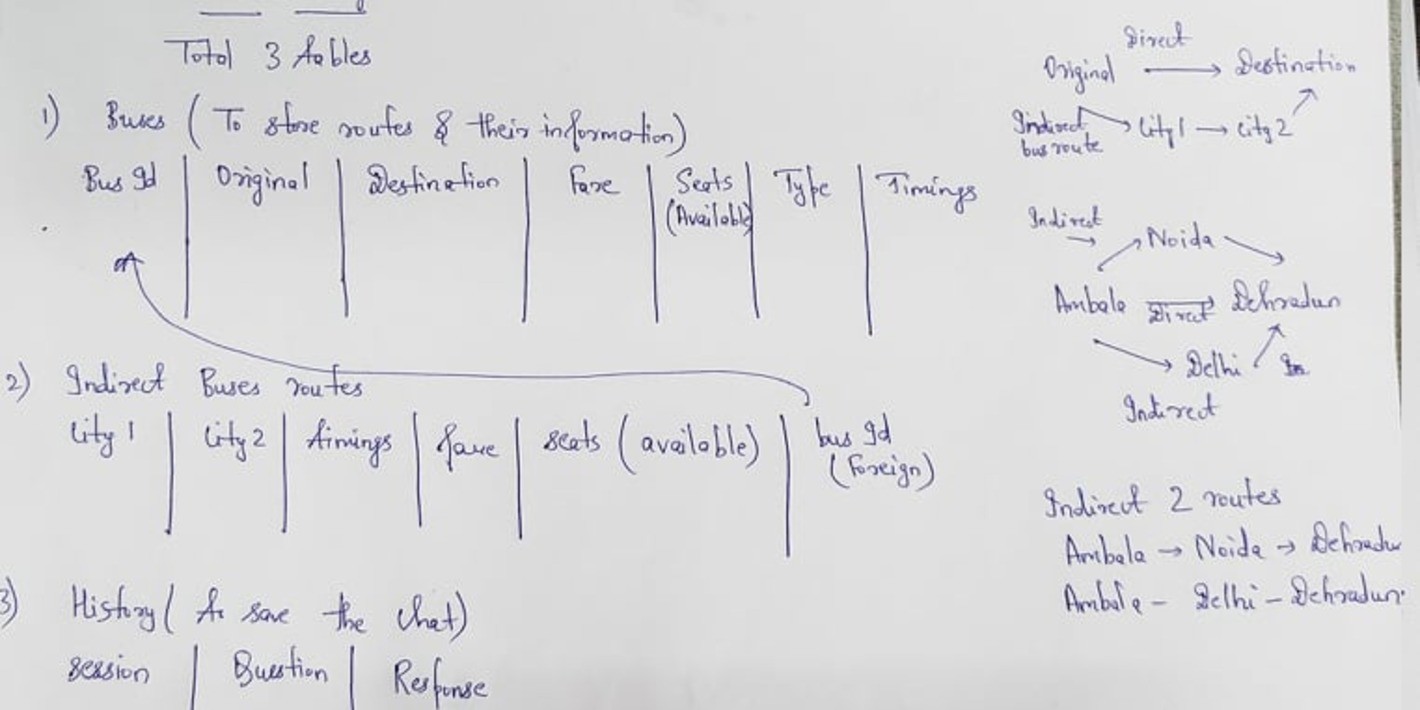 Total 3 tables
1) Buses ( To store routes & their information)
Bus Id Original Destination Fare Seats (Available) Type Timings
2) Indirect Buses routes
City 1 City 2 timings fare seats (available) bus Id (Foreign)
3) History ( To save the Chat)
session Question Response
Direct
Original → Destination
Indirect bus route → City 1 → City 2
Indirect
→ Noida
Ambala Direct Dehradun
→ Delhi
Indirect
Indirect 2 routes
Ambala → Noida → Dehradu
Ambala - Delhi - Dehradun.